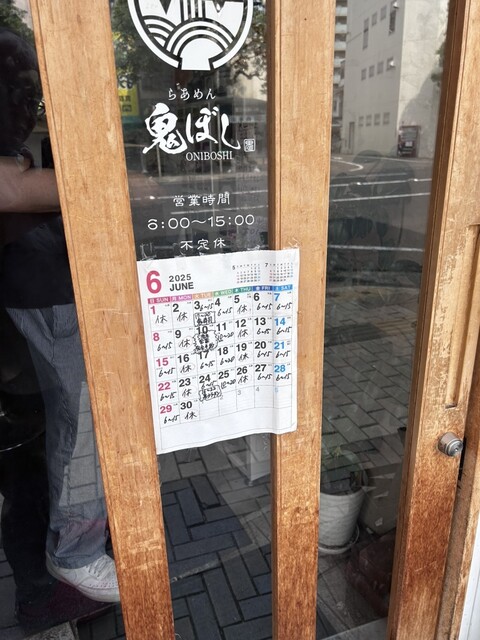 らあめん
鬼ぼし
ONIBOSHI
営業時間
6:00〜15:00
不定休
6 2025 JUNE
日 SUN 月 MON 火 TUE 水 WED 木 THU 金 FRI 土 SAT
1 2 3 4 5 6 7
休 休 6~15 6~15 休 6~15 6~15
8 9 10 11 12 13 14
6~15 休 休 6~15 6~15
15 16 17 18 19 20 21
6~15 休 6~15 休 6~15 6~15
22 23 24 25 26 27 28
6~15 休 休 6~15 6~15
29 30
6~15 休